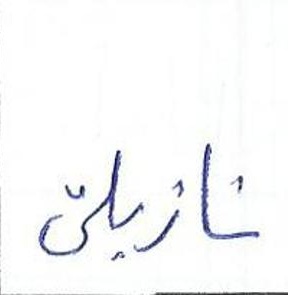 نازیلق